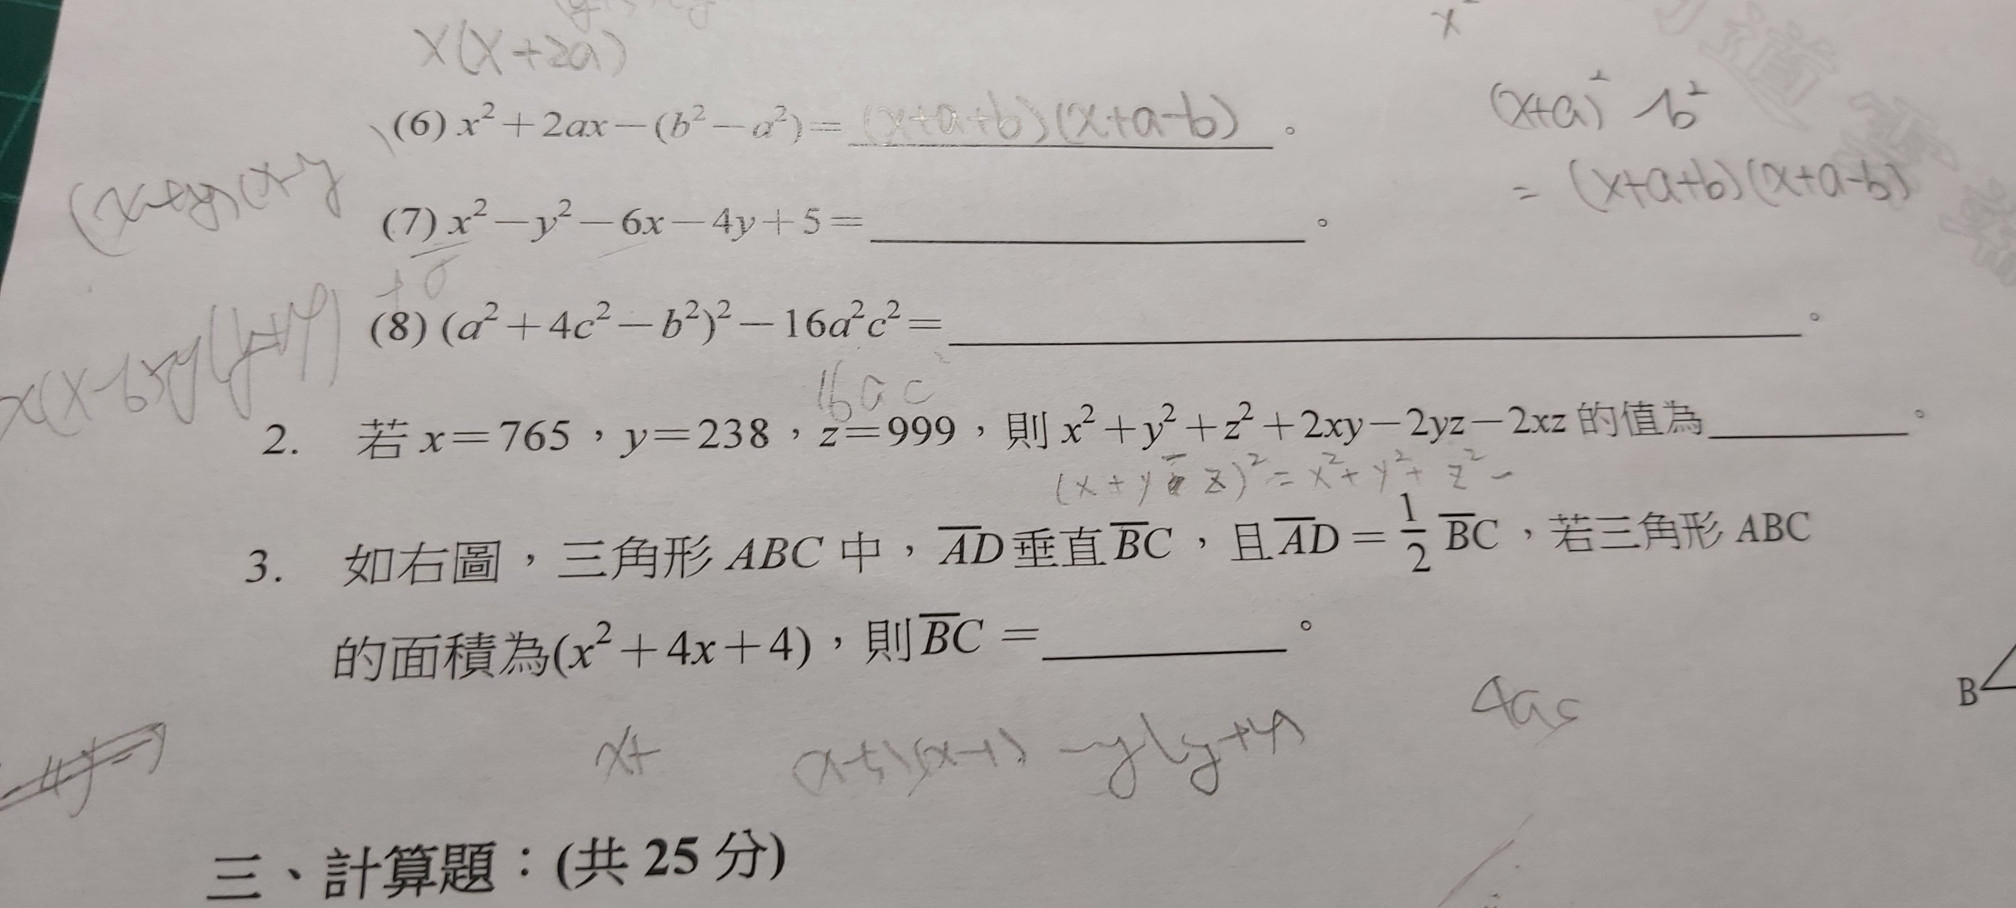 x(x+2a)
(6) x²+2ax-(b²-a²)= (x+a+b)(x+a-b) 。
(x+a)²-b²
=(x+a+b)(x+a-b)
(7) x²-y²-6x-4y+5=________。
(8) (a²+4c²-b²)²-16a²c²=________。
16ac
2. 若x=765，y=238，z=999，則x²+y²+z²+2xy-2yz-2xz的值為________。
(x+y-z)²=x²+y²+z²-
3. 如右圖，三角形ABC中，A̅D垂直B̅C，且A̅D=1/2 B̅C，若三角形ABC
的面積為(x²+4x+4)，則B̅C=________。
B
x+
-y(y+4)
三、計算題：(共25分)